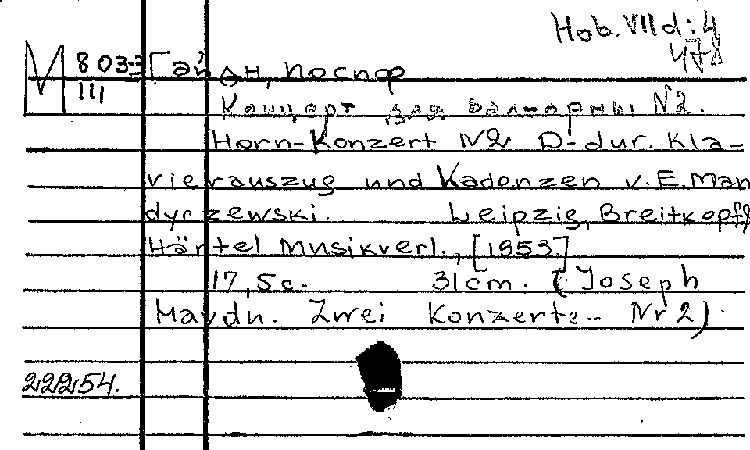 Hob. VII d: 4
478
М 803-3 Гайдн, Иосиф
III
Концерт для валторны N2.
Horn-Konzert N2 D-dur. Kla-
vierauszug und Kadenzen v. E. Man
dyczewski. Leipzig, Breitkopf &
Härtel Musikverl., [1953]
17,5 c. 31 cm. (Joseph
Haydn. Zwei Konzerte.. Nr 2)
22254.